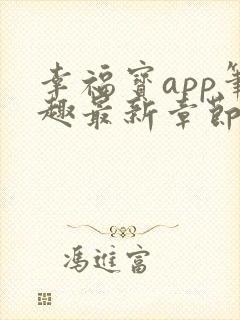 幸福宝app笔
趣最新章節
馮進富